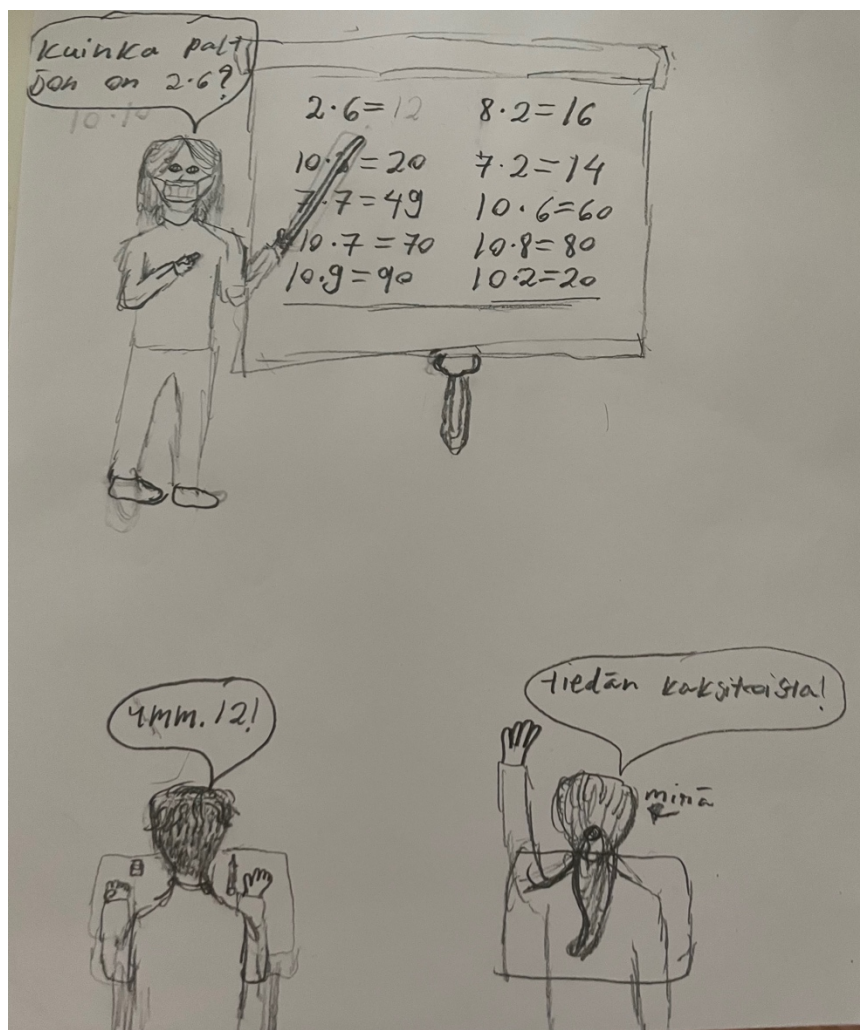 Kuinka palt
jon on 2·6?
2·6=12
10·2=20
7·7=49
10·7=70
10·9=90
8·2=16
7·2=14
10·6=60
10·8=80
10·2=20
ymm. 12!
tiedän kaksitoista!
minä